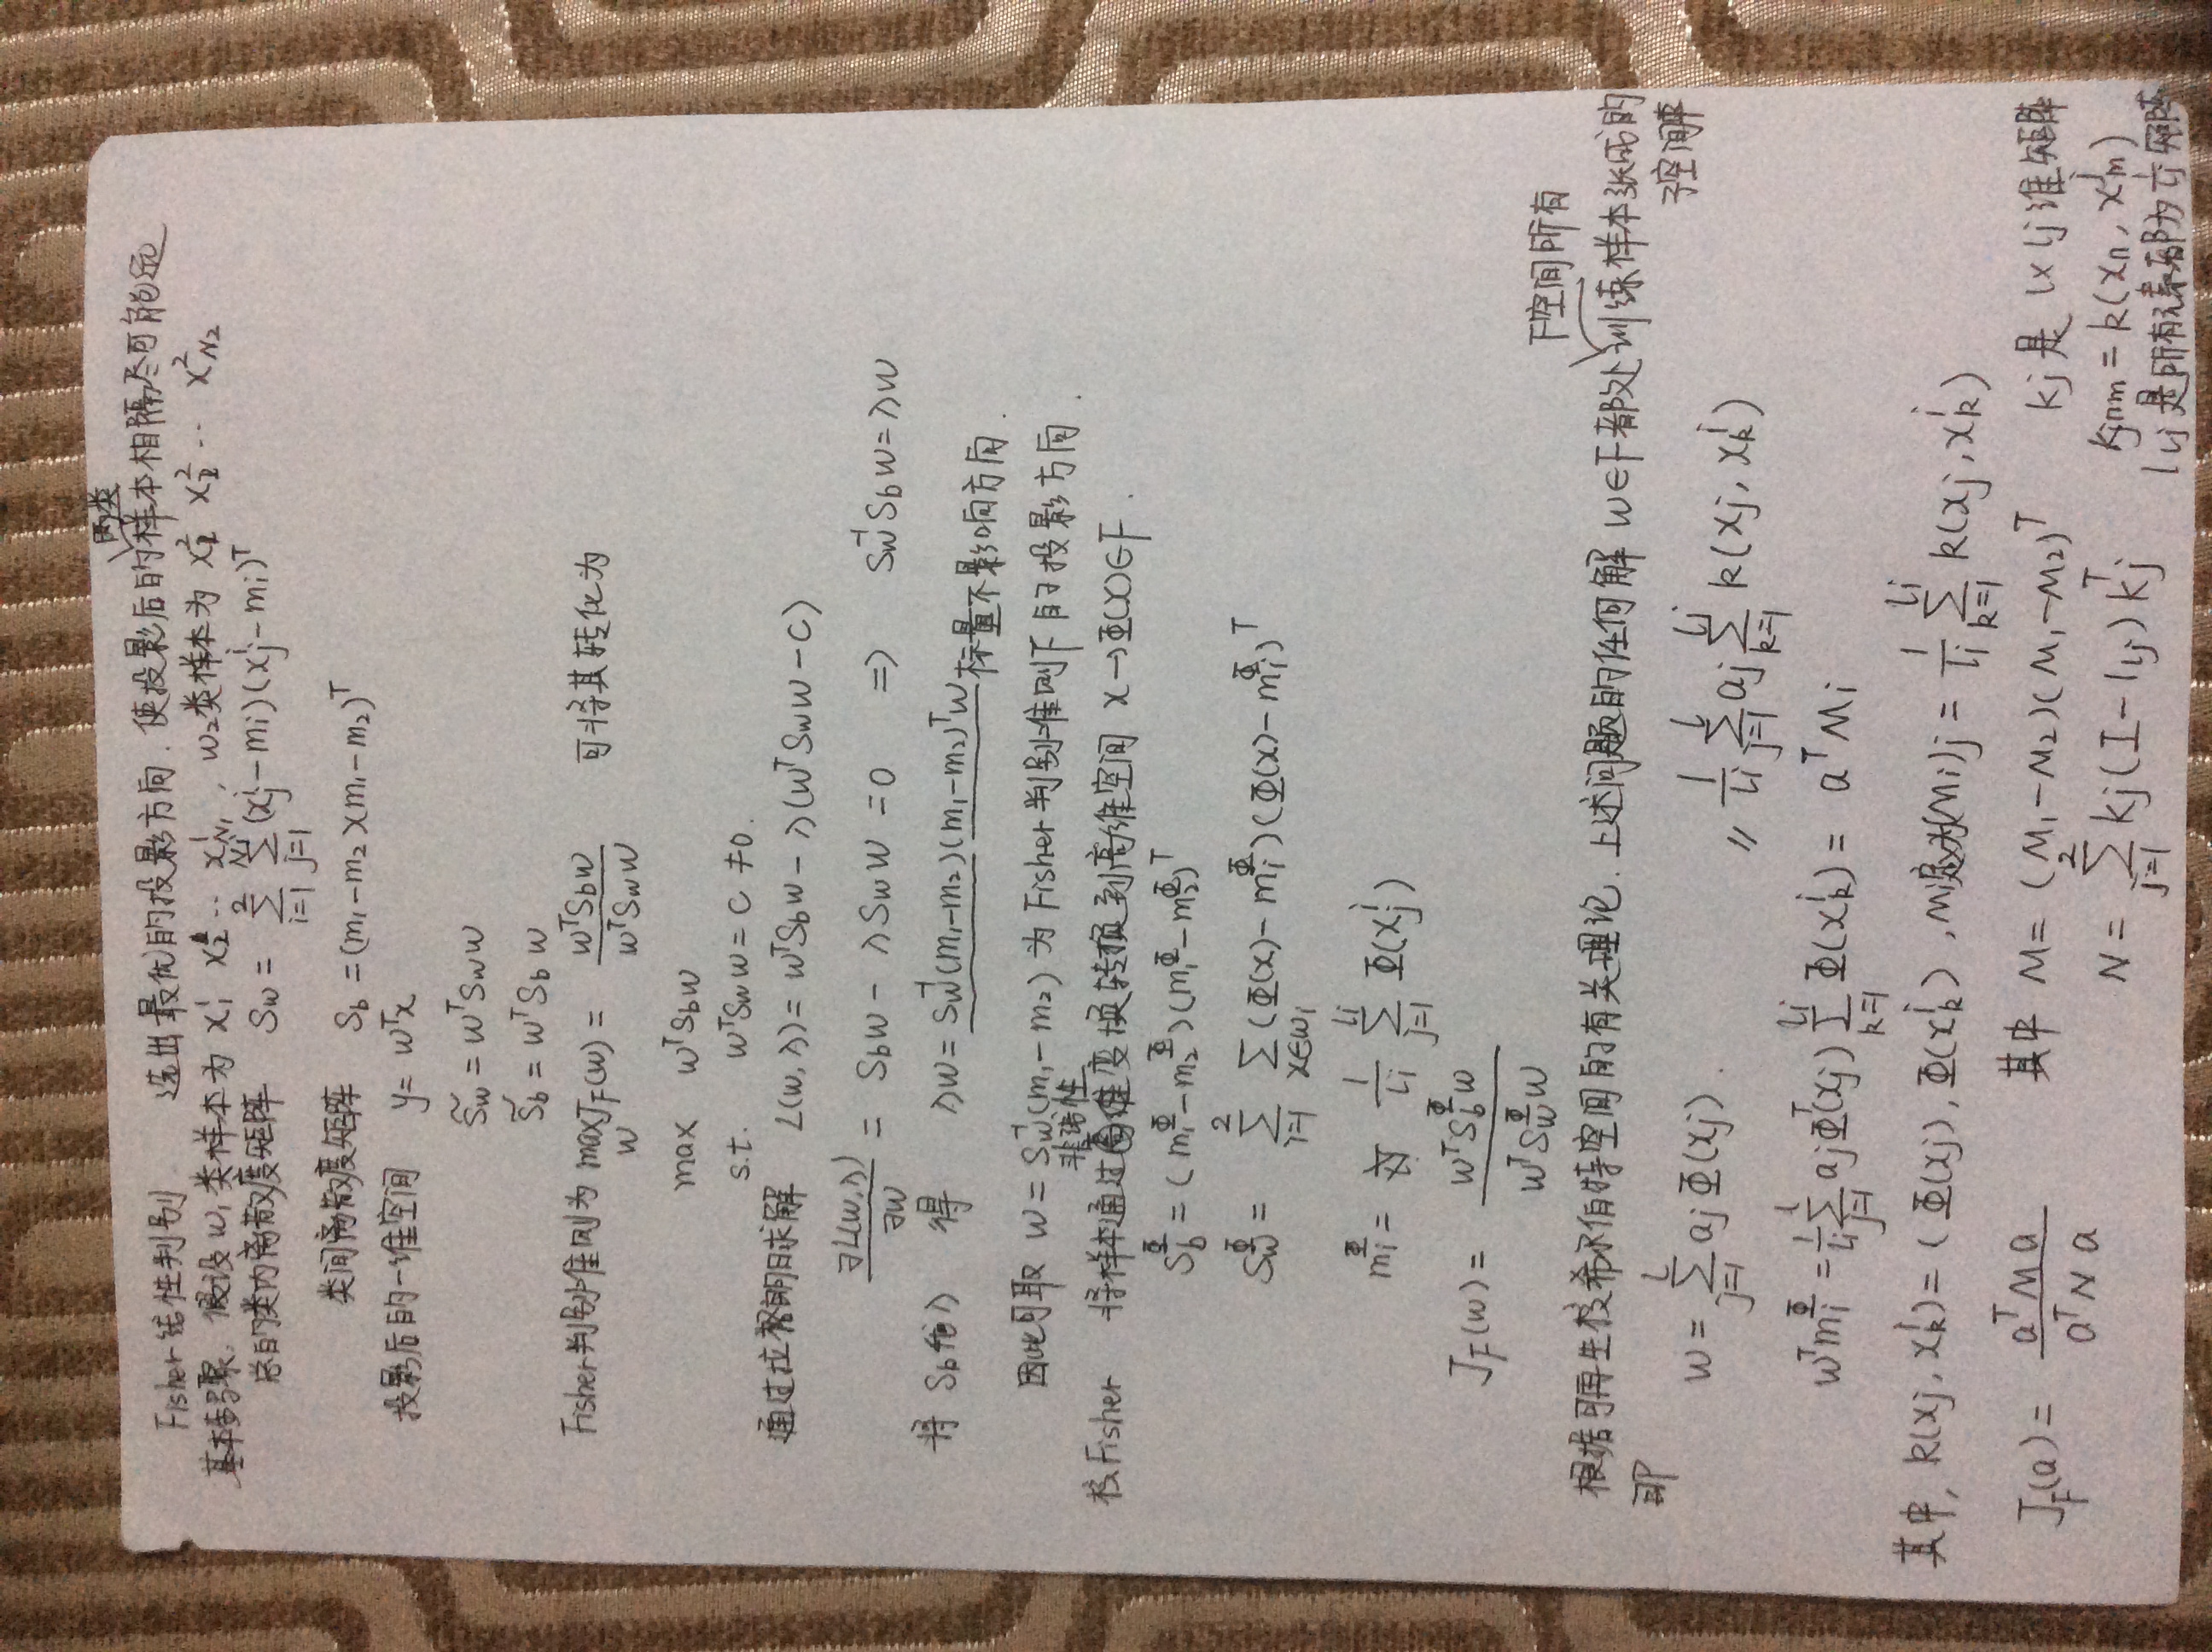 Fisher线性判别. 选出最优的投影方向. 使投影后的两类样本相隔尽可能远
基本步骤. 假设 w₁类样本为 x₁¹ x₂¹ ·· x¹_{N₁}, w₂类样本为 x₁² x₂² ·· x²_{N₂}
总的类内离散度矩阵 S_w = Σ_{i=1}^{2} Σ_{j=1}^{N_i} (x_jⁱ - m_i)(x_jⁱ - m_i)ᵀ
类间离散度矩阵 S_b = (m₁ - m₂)(m₁ - m₂)ᵀ
投影后的一维空间 y = wᵀx
S̃_w = wᵀS_w w
S̃_b = wᵀS_b w
Fisher判别准则为 max_w J_F(w) = wᵀS_b w / wᵀS_w w 可将其转化为
max wᵀS_b w
s.t. wᵀS_w w = C ≠ 0.
通过拉格朗日求解 L(w, λ) = wᵀS_b w - λ(wᵀS_w w - C)
∇L(w, λ) / ∇w = S_b w - λS_w w = 0 ⇒ S_w⁻¹S_b w = λw
将 S_b 代入 得 λw = S_w⁻¹(m₁ - m₂)(m₁ - m₂)ᵀw 标量不影响方向.
因此可取 w = S_w⁻¹(m₁ - m₂) 为 Fisher判别准则下的投影方向.
核Fisher 将样本通过非线性变换转换到高维空间 x → Φ(x) ∈ F.
S_b^Φ = (m₁^Φ - m₂^Φ)(m₁^Φ - m₂^Φ)ᵀ
S_w^Φ = Σ_{i=1}^{2} Σ_{x∈w_i} (Φ(x) - m_i^Φ)(Φ(x) - m_i^Φ)ᵀ
m_i^Φ = 1/l_i Σ_{j=1}^{l_i} Φ(x_jⁱ)
J_F(w) = wᵀS_b^Φ w / wᵀS_w^Φ w
根据可再生核希尔伯特空间的有关理论. 上述问题的任何解 w∈F都处F空间所有训练样本张成的子空间中
即
w = Σ_{j=1}^{l} a_j Φ(x_j).
wᵀm_i^Φ = 1/l_i Σ_{j=1}^{l} a_j Φᵀ(x_j) Σ_{k=1}^{l_i} Φ(x_kⁱ) = aᵀM_i
〃 1/l_i Σ_{j=1}^{l} a_j Σ_{k=1}^{l_i} k(x_j, x_kⁱ)
其中, k(x_j, x_kⁱ) = (Φ(x_j), Φ(x_kⁱ)), (M_i)_j = 1/l_i Σ_{k=1}^{l_i} k(x_j, x_kⁱ)
J_F(a) = aᵀMa / aᵀNa 其中 M = (M₁ - M₂)(M₁ - M₂)ᵀ
N = Σ_{j=1}^{2} k_j(I - 1_{l_j})k_jᵀ
k_j是 l×l_j维矩阵
k_{j nm} = k(x_n, x_mʲ)
1_{l_j}是所有元素都为 1/l_j 矩阵